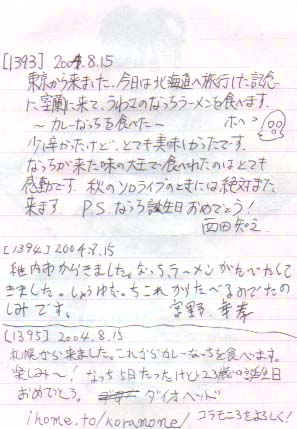 [1393] 2004.8.15
東京から来ました。今日は北海道へ旅行した記念
に室蘭に来て、うわさのなっちラーメンを食べます。
～カレーなっちを食べた～ ホヘ〉
少し辛かったけど、とても美味しかったです。
なっちが来た味の大王で食べれたのはとても
感動です。秋のソロライブのときには、絶対また
来ます。 P.S. なっち誕生日おめでとう!
西田
[1394] 2004.8.15
稚内市からきました。なっちラーメンがたべたくて
きました。しょうゆなっちこれからたべるのでたの
しみです。 宮野
[1395] 2004.8.15
札幌から来ました。これからカレーなっちを食べます。
楽しみ～! なっち5日たったけど23歳の誕生日
おめでとう。 ダイオヘッド
ihome.to/koramone/ コラモニろをよろしく!